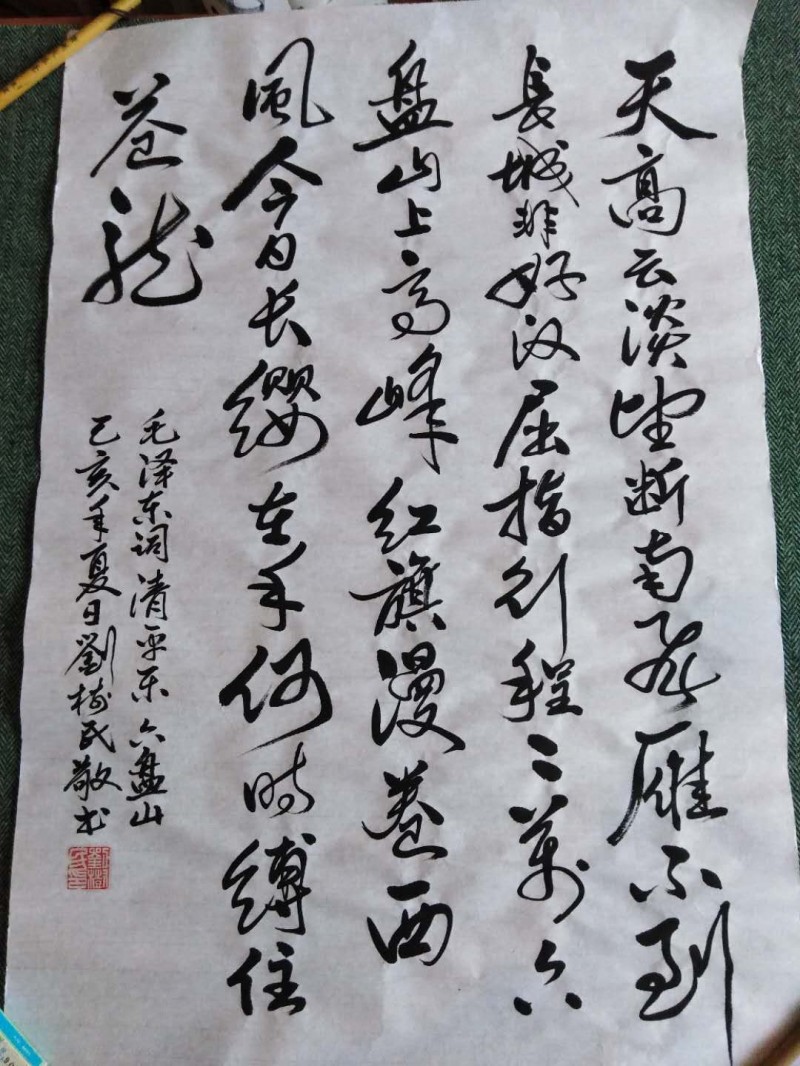 天高云淡望断南飞雁不到
長城非好汉屈指行程二萬六
盤山上高峰红旗漫卷西
風今日长缨在手何时缚住
苍龙
毛泽东词清平乐六盘山
己亥年夏日劉树民敬书